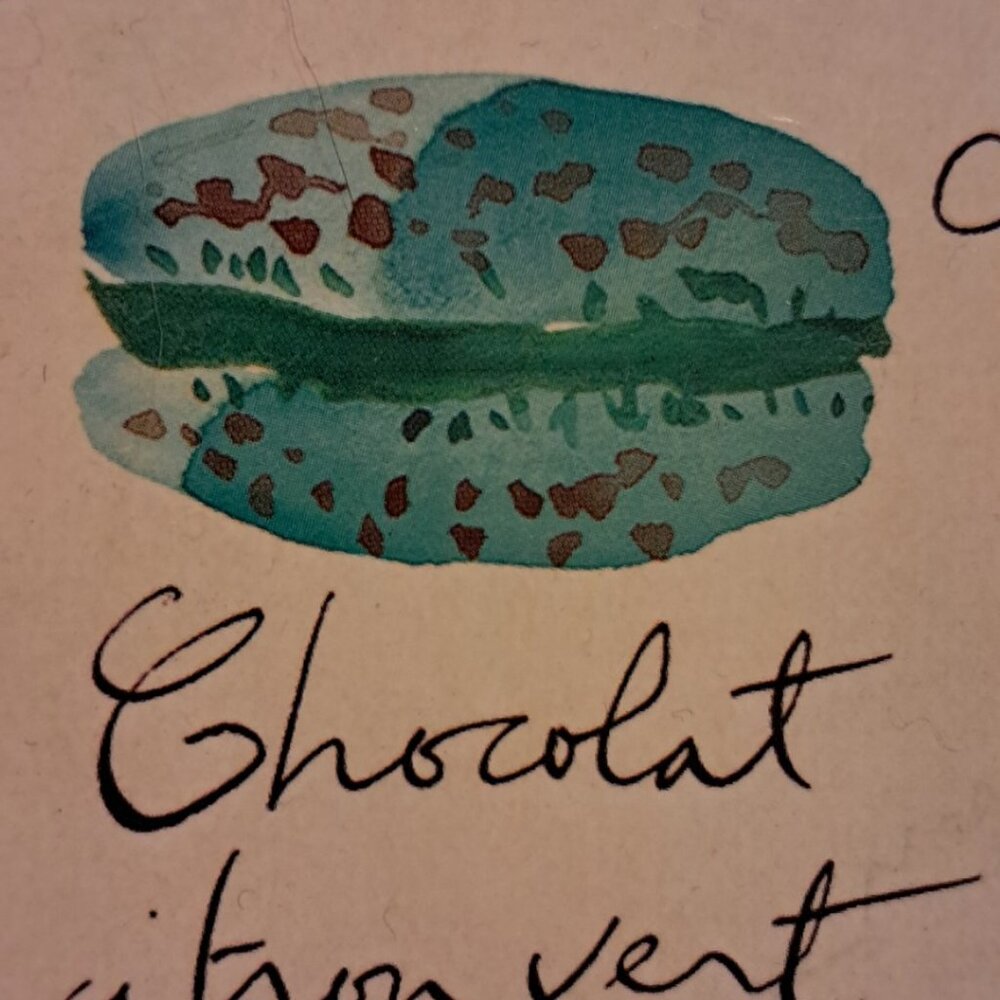 Chocolat
citron vert